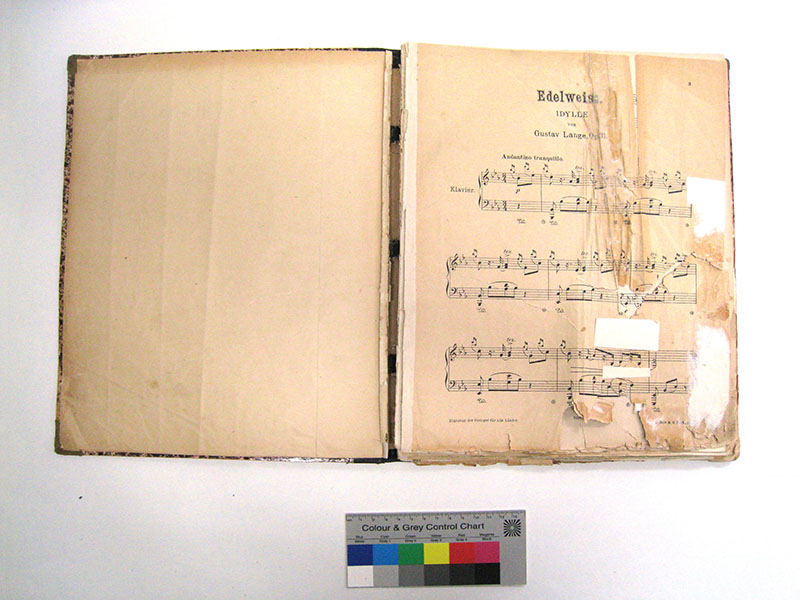 Edelweiss.
IDYLLE
von
Gustav Lange, Op.31.
Andantino tranquillo.
Klavier.
Eigentum der Verleger für alle Länder.
Colour & Grey Control Chart
Blue Cyan Green Yellow Red Magenta
White Grey 1 Grey 2 Grey 3 Grey 4 Black